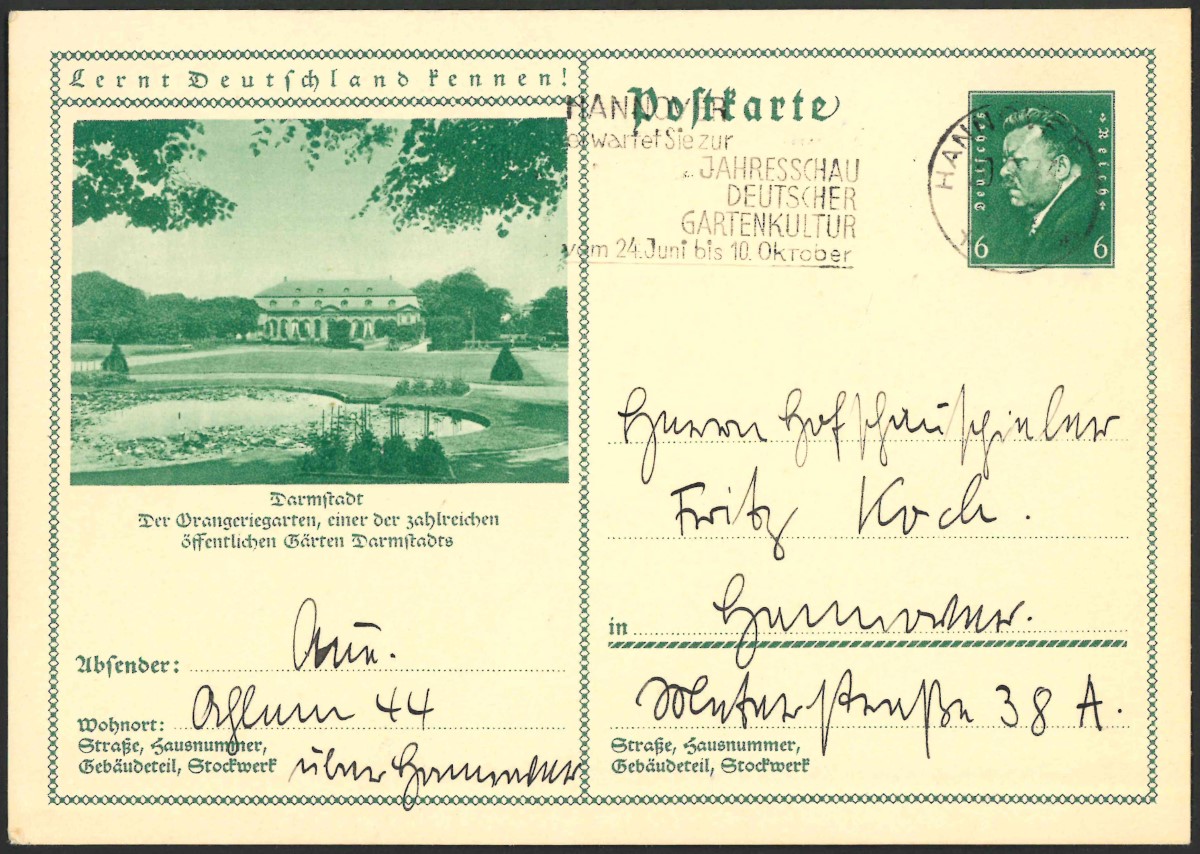 Lernt Deutschland kennen!
Darmstadt
Der Orangeriegarten, einer der zahlreichen
öffentlichen Gärten Darmstadts
Absender:
Wohnort: Ahlem 44
Straße, Hausnummer,
Gebäudeteil, Stockwerk
über Hannover
Postkarte
HANNOVER
erwartet Sie zur
JAHRESSCHAU
DEUTSCHER
GARTENKULTUR
vom 24. Juni bis 10. Oktober
Deutsches Reich
6 6
Herrn Hofschauspieler
Fritz Koch.
in Hannover.
straße 38 A.
Straße, Hausnummer,
Gebäudeteil, Stockwerk